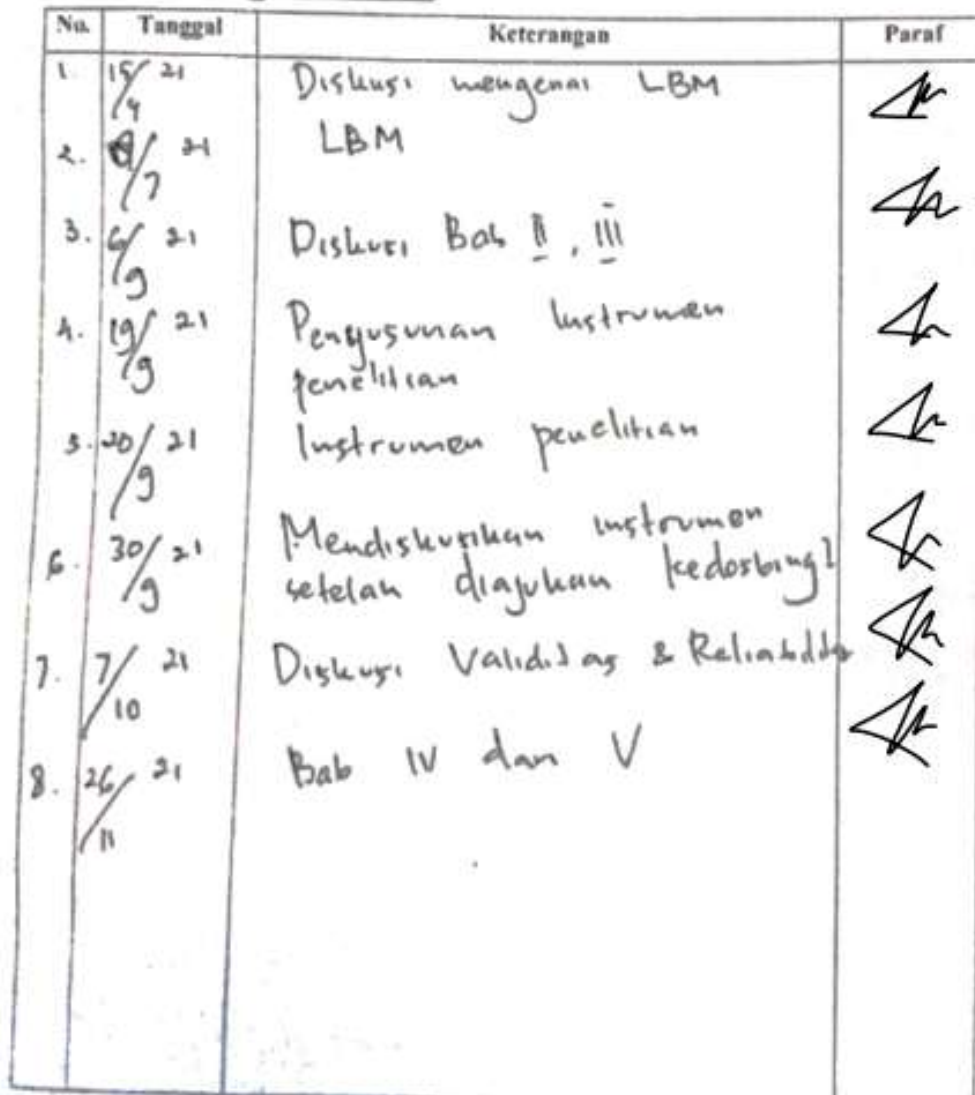 No. Tanggal Keterangan Paraf
1. 15/4 21 Diskusi mengenai LBM
2. 8/7 21 LBM
3. 6/9 21 Diskusi Bab II, III
4. 19/9 21 Penyusunan Instrumen
penelitian
5. 20/9 21 Instrumen penelitian
6. 30/9 21 Mendiskusikan instrumen
setelah diajukan kedosbing2
7. 7/10 21 Diskusi Validitas & Reliabilitas
8. 26/11 21 Bab IV dan V